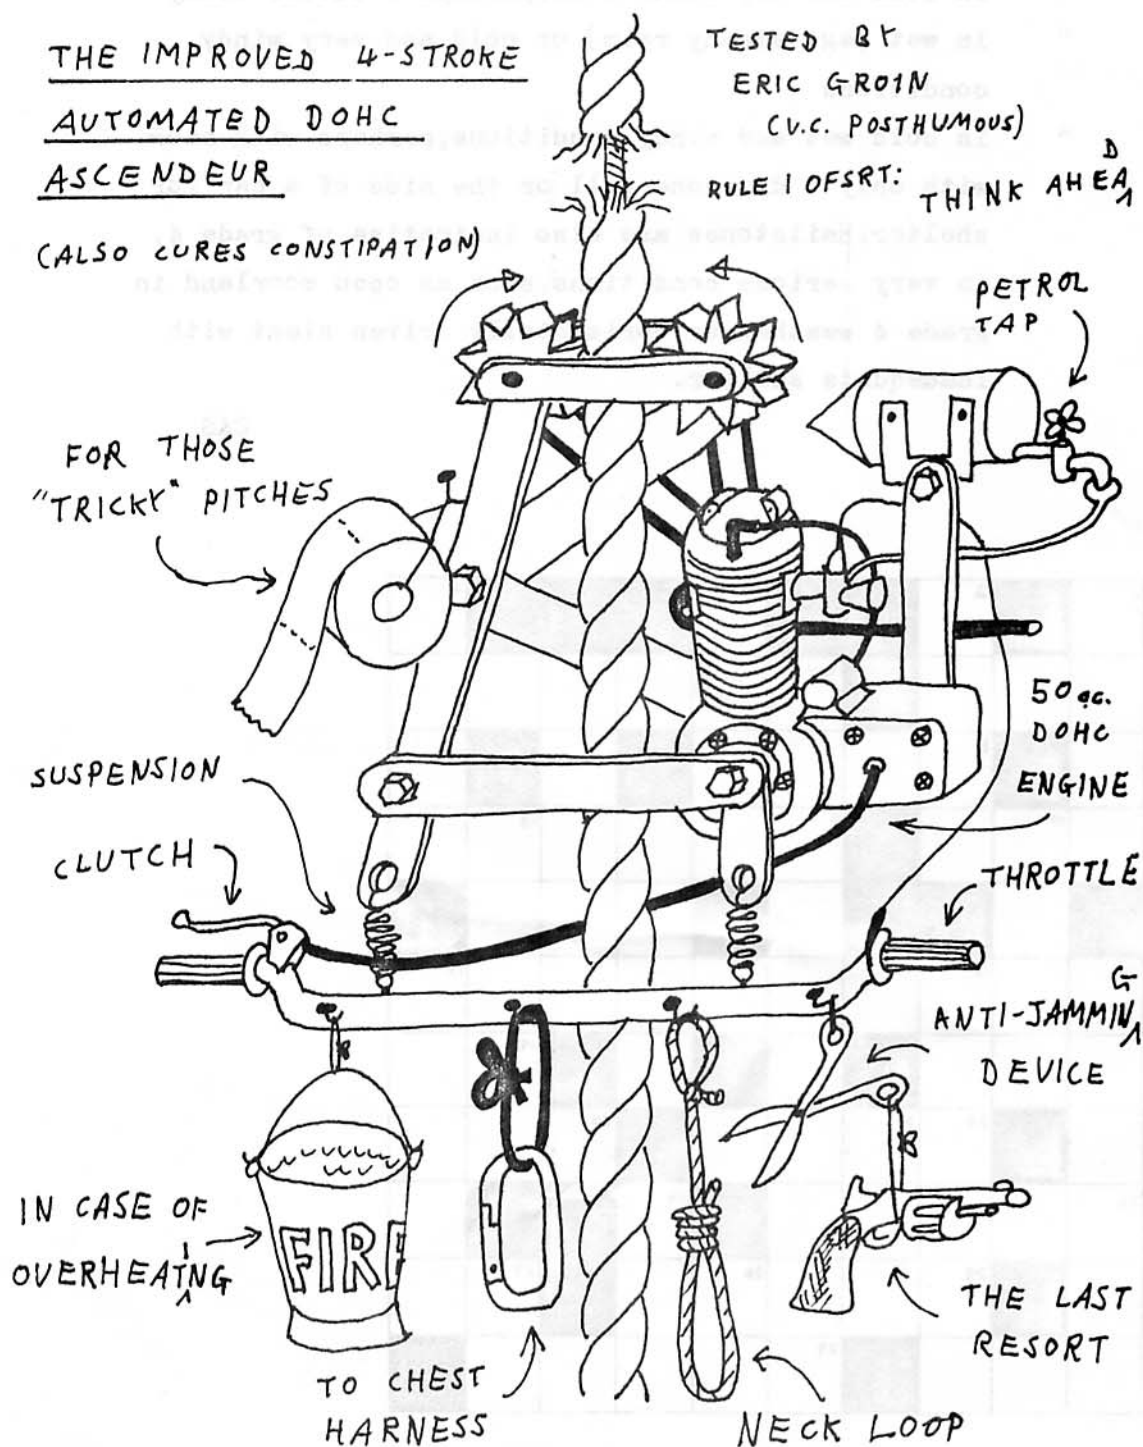 THE IMPROVED 4-STROKE
AUTOMATED DOHC
ASCENDEUR
(ALSO CURES CONSTIPATION)
TESTED BY
ERIC GROIN
(V.C. POSTHUMOUS)
RULE 1 OF SRT:
THINK AHEAD
PETROL
TAP
FOR THOSE
"TRICKY" PITCHES
50 cc.
DOHC
ENGINE
SUSPENSION
CLUTCH
THROTTLE
ANTI-JAMMING
DEVICE
IN CASE OF
OVERHEATING
FIRE
THE LAST
RESORT
TO CHEST
HARNESS
NECK LOOP